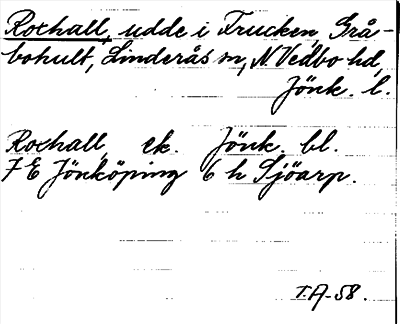 Rothall, udde i Trucken, Grå-
bohult, Linderås sn, N. Vedbo hd,
Jönk. l.
Rothall, ek. Jönk. bl.
7 E Jönköping 6 h Sjöarp.
T.A-58.